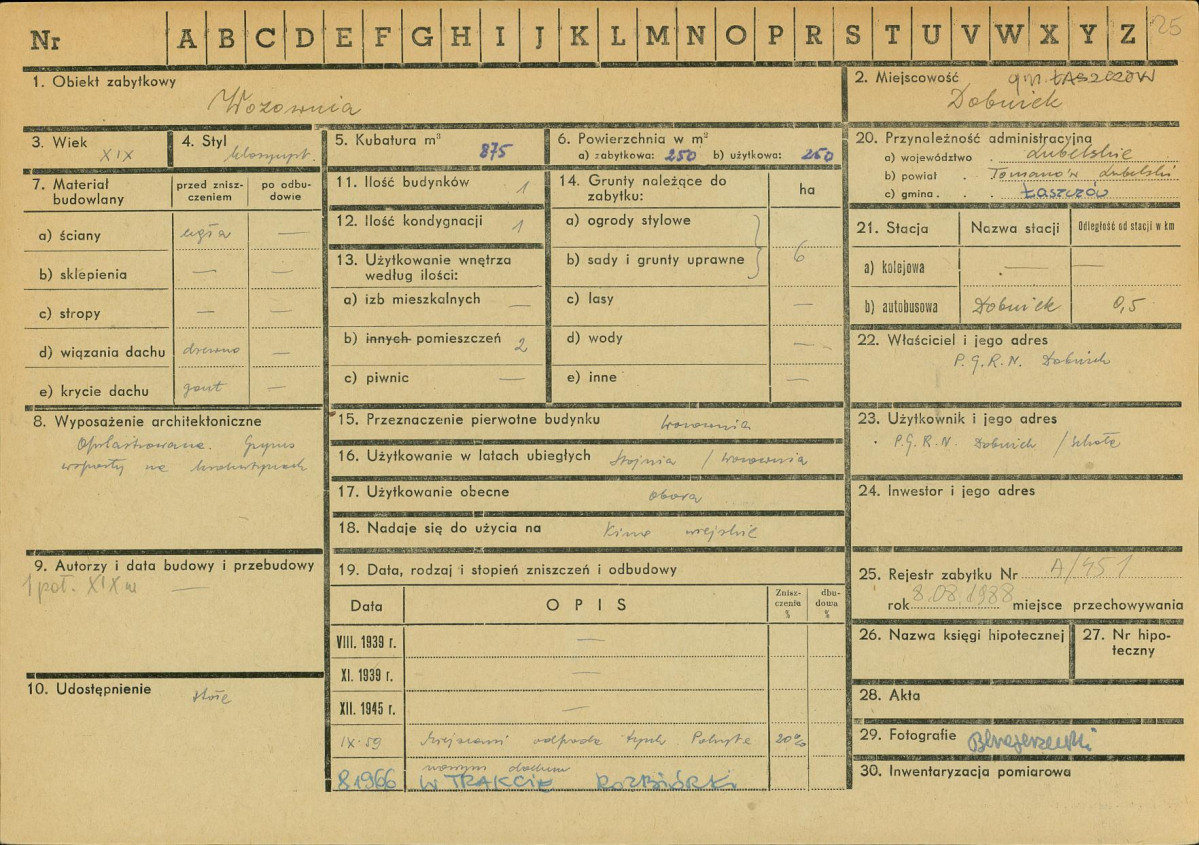 Nr A B C D E F G H I J K L M N O P R S T U V W X Y Z 25
1. Obiekt zabytkowy
Wozownia
2. Miejscowość gm. ŁASZCZÓW
Dobużek
3. Wiek XIX
4. Styl klasycyst.
5. Kubatura m³ 875
6. Powierzchnia w m²
a) zabytkowa: 250 b) użytkowa: 250
20. Przynależność administracyjna
a) województwo . lubelskie
b) powiat . Tomaszów lubelski
c) gmina . . Łaszczów
7. Materiał budowlany
przed zniszczeniem
po odbudowie
a) ściany cegła —
b) sklepienia — —
c) stropy — —
d) wiązania dachu drewno —
e) krycie dachu gont —
11. Ilość budynków 1
12. Ilość kondygnacji 1
13. Użytkowanie wnętrza
według ilości:
a) izb mieszkalnych —
b) innych pomieszczeń 2
c) piwnic —
14. Grunty należące do
zabytku:
ha
a) ogrody stylowe
b) sady i grunty uprawne 6
c) lasy —
d) wody —
e) inne —
21. Stacja Nazwa stacji Odległość od stacji w km
a) kolejowa — —
b) autobusowa Dobużek 0,5
22. Właściciel i jego adres
P.G.R.N. Dobużek
8. Wyposażenie architektoniczne
Gzyms
wsparty na
15. Przeznaczenie pierwotne budynku wozownia
16. Użytkowanie w latach ubiegłych Stajnia / wozownia
17. Użytkowanie obecne obora
18. Nadaje się do użycia na Kino wiejskie
23. Użytkownik i jego adres
P.G.R.N. Dobużek / Szkoła
24. Inwestor i jego adres
9. Autorzy i data budowy i przebudowy
1 poł. XIX w —
19. Data, rodzaj i stopień zniszczeń i odbudowy
Data OPIS Zniszczenia % dbudowa %
VIII. 1939 r. —
XI. 1939 r. —
XII. 1945 r. —
IX. 59 miejscami odpada tynk Pokryta 20%
nowym dachem
8 1966 W TRAKCIE ROZBIÓRKI
25. Rejestr zabytku Nr A/451
rok 8.08.1988 miejsce przechowywania
26. Nazwa księgi hipotecznej
27. Nr hipoteczny
10. Udostępnienie
28. Akta
29. Fotografie
30. Inwentaryzacja pomiarowa